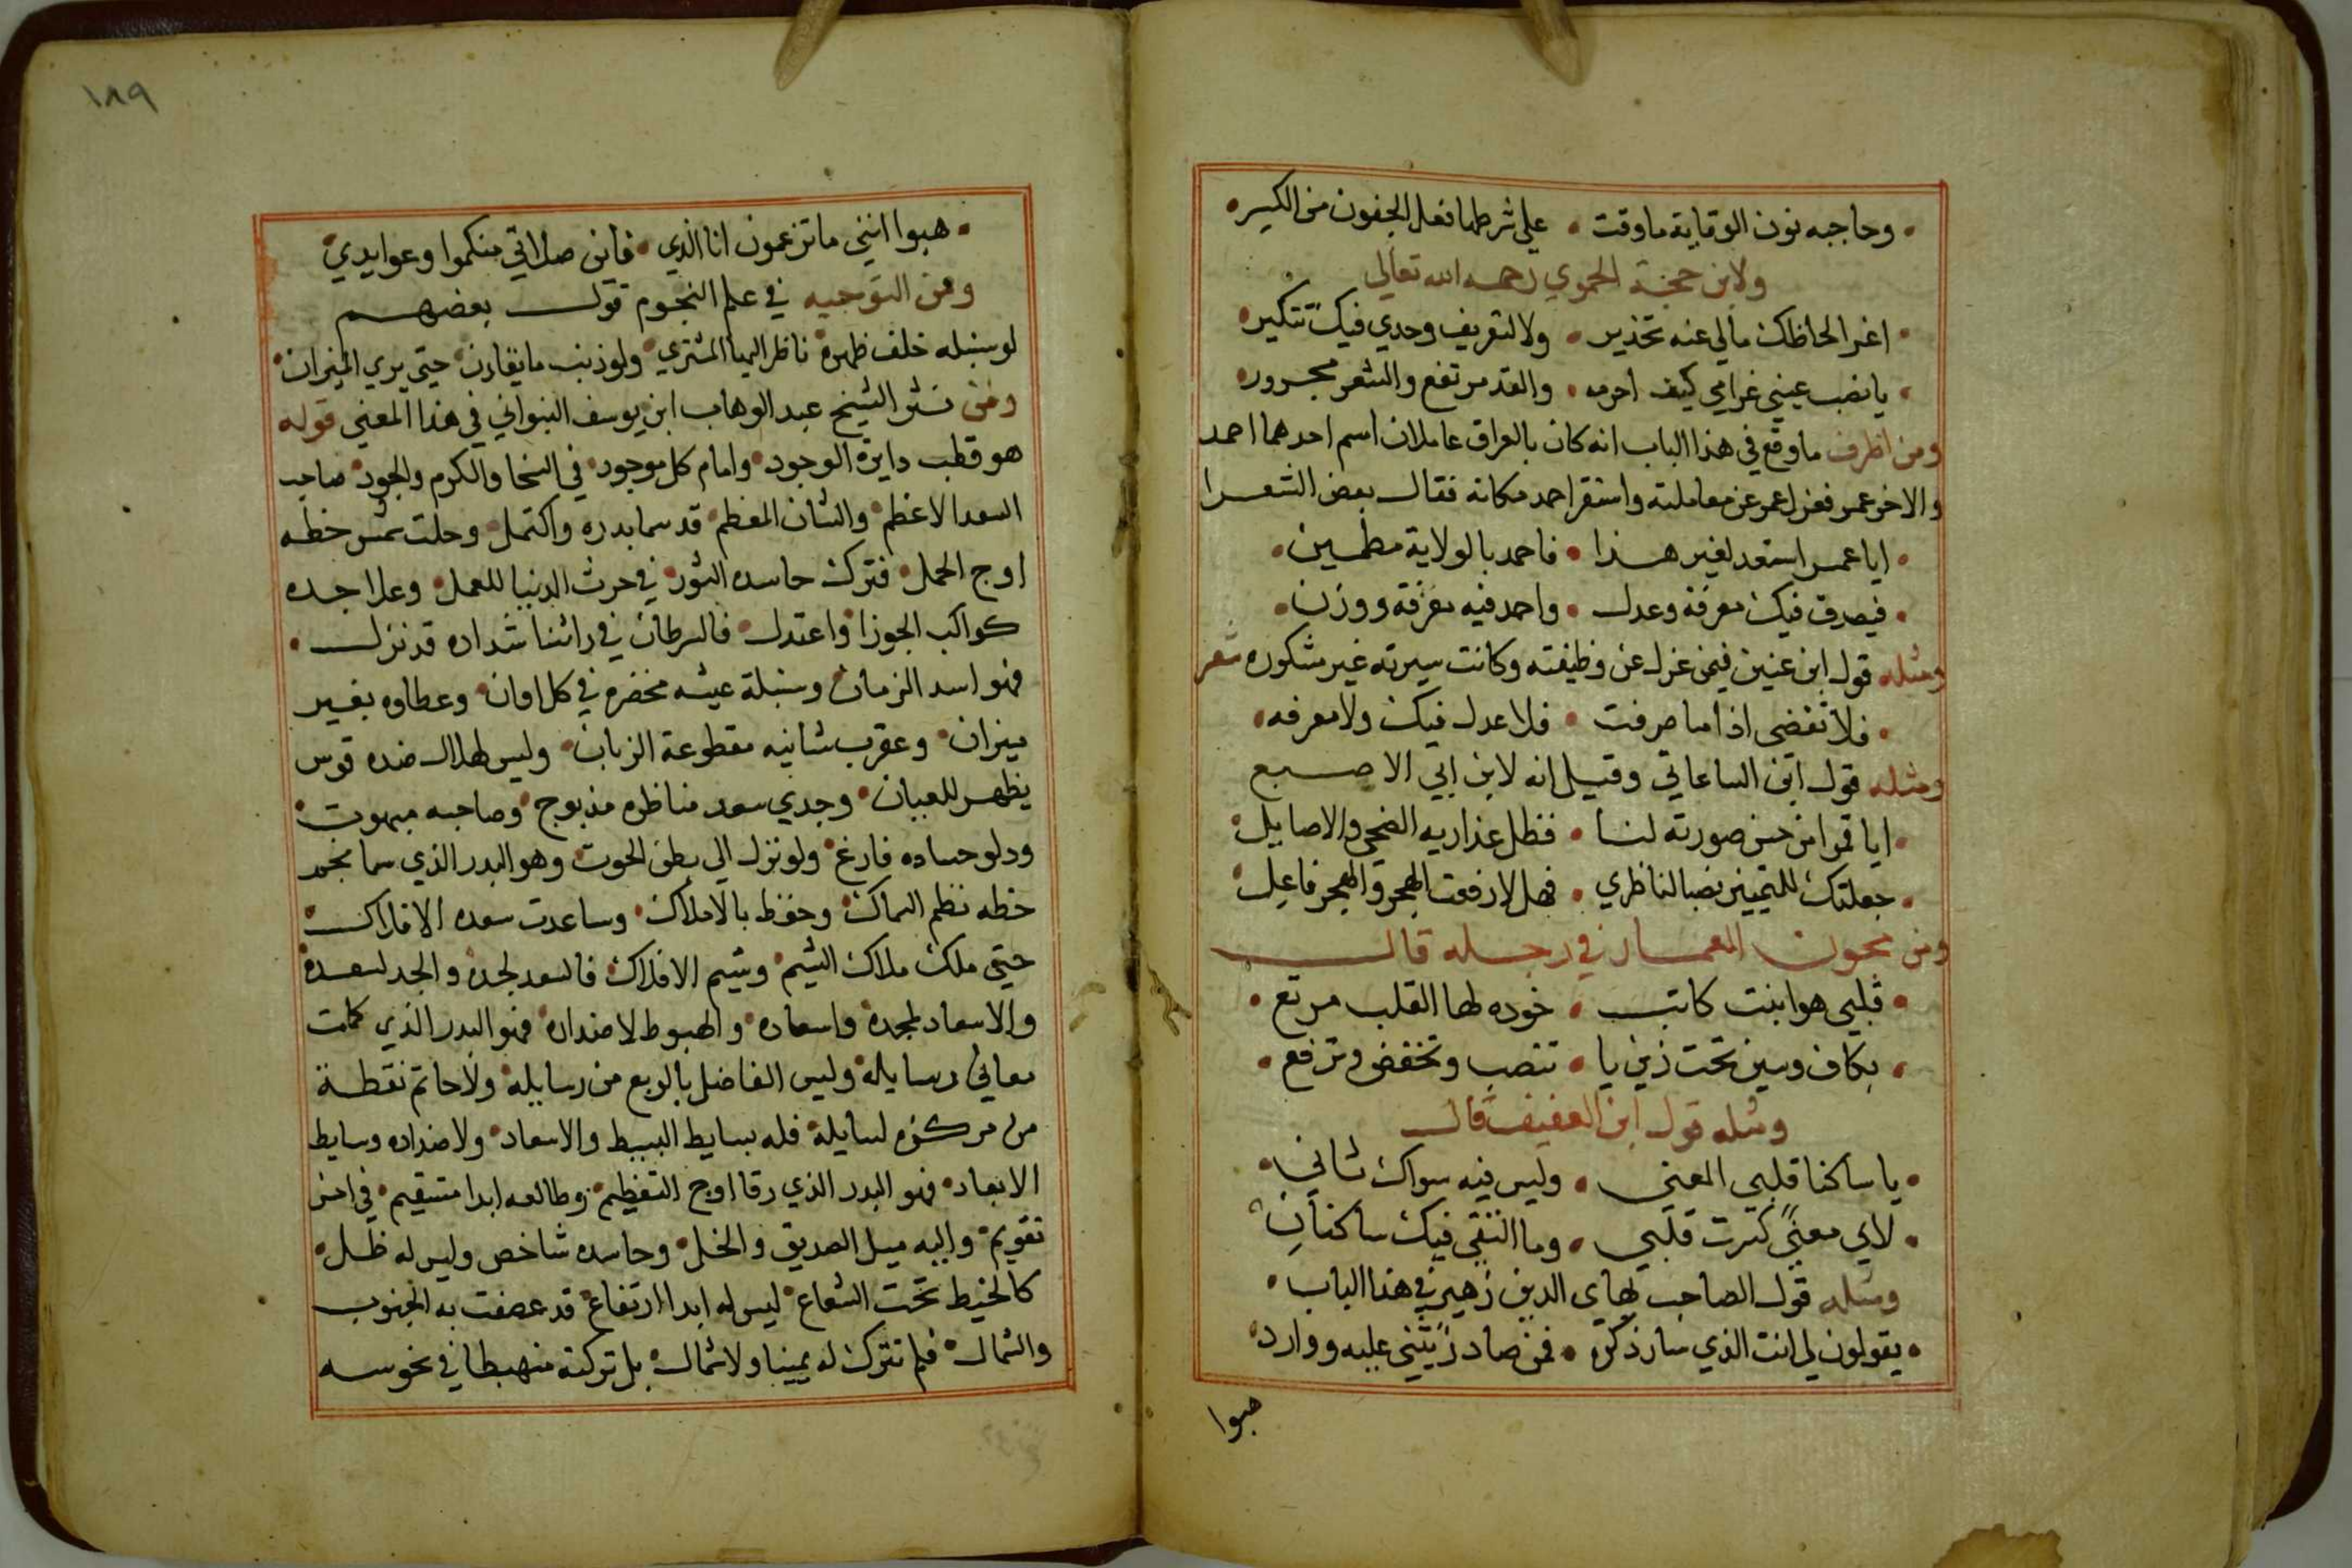 وحاجبه نون الوقاية ما وقت • على شرطها فعل الجفون من الكسر
ولابن حجة الحموي رحمه الله تعالى
اغر الحاظك مالي عنه تحذير • ولا لتعريف وجدي فيك تنكير
يا نصب عيني غرامي كيف احرمه • والقد مرتفع والشعر مجرور
ومن اظرف ما وقع في هذا الباب انه كان بالعراق عاملان اسم احدهما احمد
والاخر عمر فعزل عمر عن معاملته واستقر احمد مكانه فقال بعض الشعرا
ايا عمر استعد لغير هذا • فاحمد بالولاية مطمين
فيصدق فيك معرفة وعدل • واحمد فيه معرفة ووزن
ومثله قول ابن عنين فيمن عزل عن وظيفته وكانت سيرته غير مشكوره شعر
فلا تغضبن اذا ما صرفت • فلا عدل فيك ولا معرفه
ومثله قول ابن الساعاتي وقيل انه لابن ابي الاصبع
ايا قمرا من حسن صورته لنا • فظل عذاريه الضحى والاصايل
جعلتك للتمييز نصبا لناظري • فهل لا رفعت الهجر والهجر فاعل
ومن مجون المعمار في رجله قال
قلبي هوا بنت كاتب • خوده لها القلب مرتع
بكاف وسين تحت ذين يا • تنصب وتخفض وترفع
ومثله قول ابن العفيف قال
يا ساكنا قلبي المعنى • وليس فيه سواك ثاني
لاي معنى كسرت قلبي • وما التقى فيك ساكنان
ومثله قول الصاحب بهاي الدين زهير في هذا الباب
يقولون لي انت الذي سار ذكره • فمن صادر يثني عليه ووارد
هبوا
١٨٩
هبوا انني ما تزعمون انا الذي • فاين صلاتي منكموا وعوايدي
ومن التوجيه في علم النجوم قول بعضهم
لو سنبله خلف ظهره ناظر اليها المشتري • ولو ذنب ما يقارن حتى يري الميزان
ومن نثر الشيخ عبد الوهاب ابن يوسف النبواني في هذا المعنى قوله
هو قطب دايرة الوجود • وامام كل موجود • في السخا والكرم والجود • صاحب
السعد الاعظم • والشان المعظم • قد سما بدره واكتمل • وحلت شمس خطه
اوج الحمل • فترك حاسده الثور • في حرث الدنيا للعمل • وعلا جده
كواكب الجوزا واعتدل • فالسرطان في راسنا شداده قد نزل •
فهو اسد الزمان • وسنبلة عيشه مخضره في كل اوان • وعطاوه بغير
ميزان • وعقرب شانيه مقطوعة الزبان • وليس لهلال ضده قوس
يظهر للعيان • وجدي سعد مناظره مذبوح • وصاحبه مبهوت
ودلو حساده فارغ • ولو نزل الي بطن الحوت • وهو البدر الذي سما نجم
خطه نظم السماك • وحفظ بالاملاك • وساعدت سعده الافلاك
حتى ملك ملاك الشيم • وشيم الافلاك • فالسعد لجده • والجد لسعده
والاسعاد لمجده واسعاده • والهبوط لاضداده • فهو البدر الذي كملت
معاني رسايله • وليس الفاضل بالربع من رسايله • ولا حاتم نقطة
من مركزه لسايله • فله بسايط البسط والاسعاد • ولاضداده وسايط
الابعاد • فهو البدر الذي رقا اوج التعظيم • وطالعه ابدا مستقيم • في احسن
تقويم • واليه ميل الصديق والخل • وحاسده شاخص وليس له ظل
كالخيط تحت الشعاع • ليس له ابدا ارتفاع • قد عصفت به الجنوب
والشمال • فلم تترك له يمينا ولا شمال • بل تركته منهبطا في نحوسه